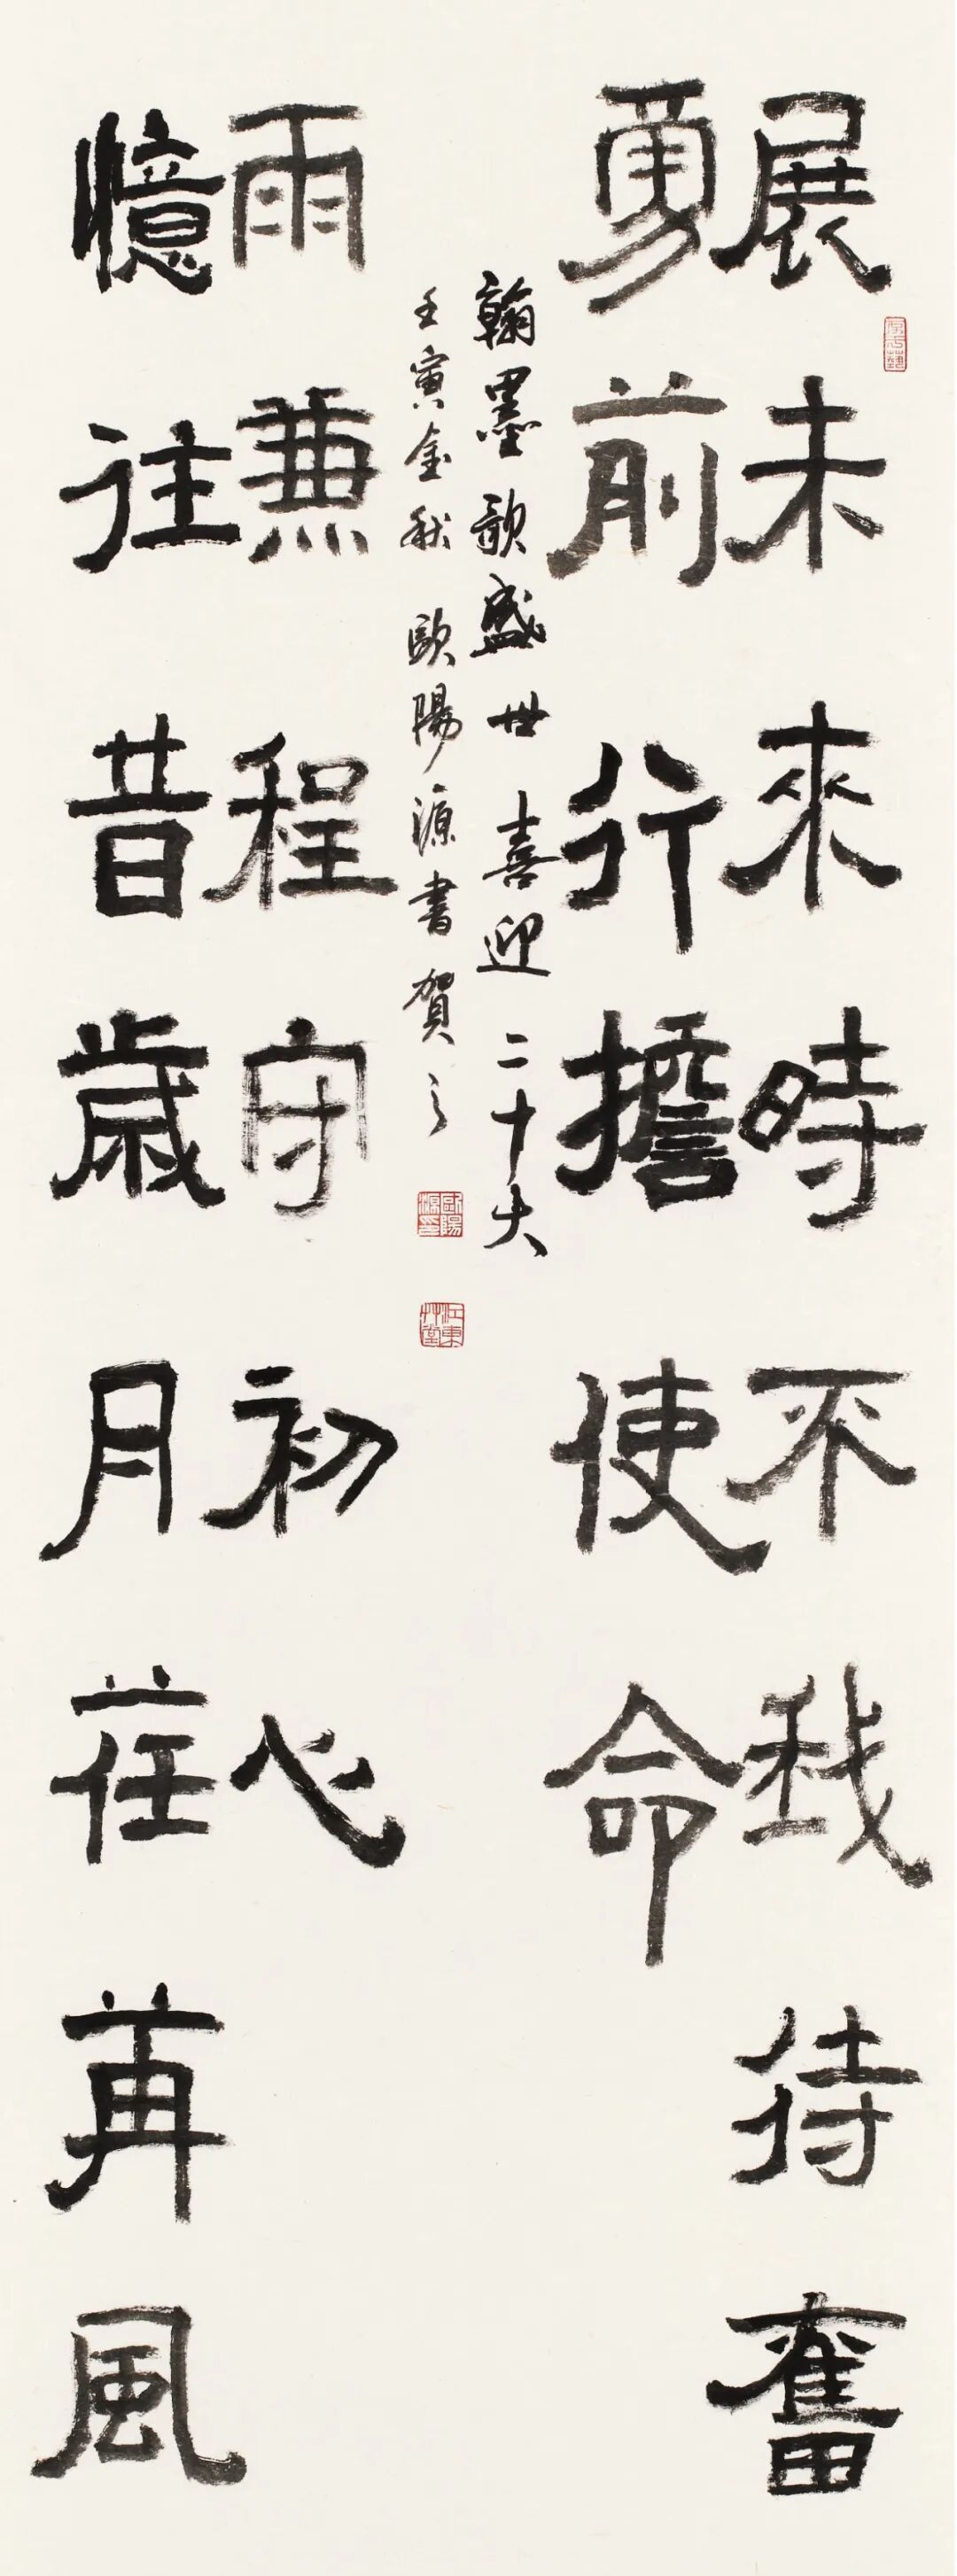 展未來時不我待奮
勇前行擔使命
憶往昔歲月荏苒風
雨兼程守初心
翰墨歌盛世喜迎二十大
壬寅金秋歐陽源書賀之
歐陽源印
江東艸堂